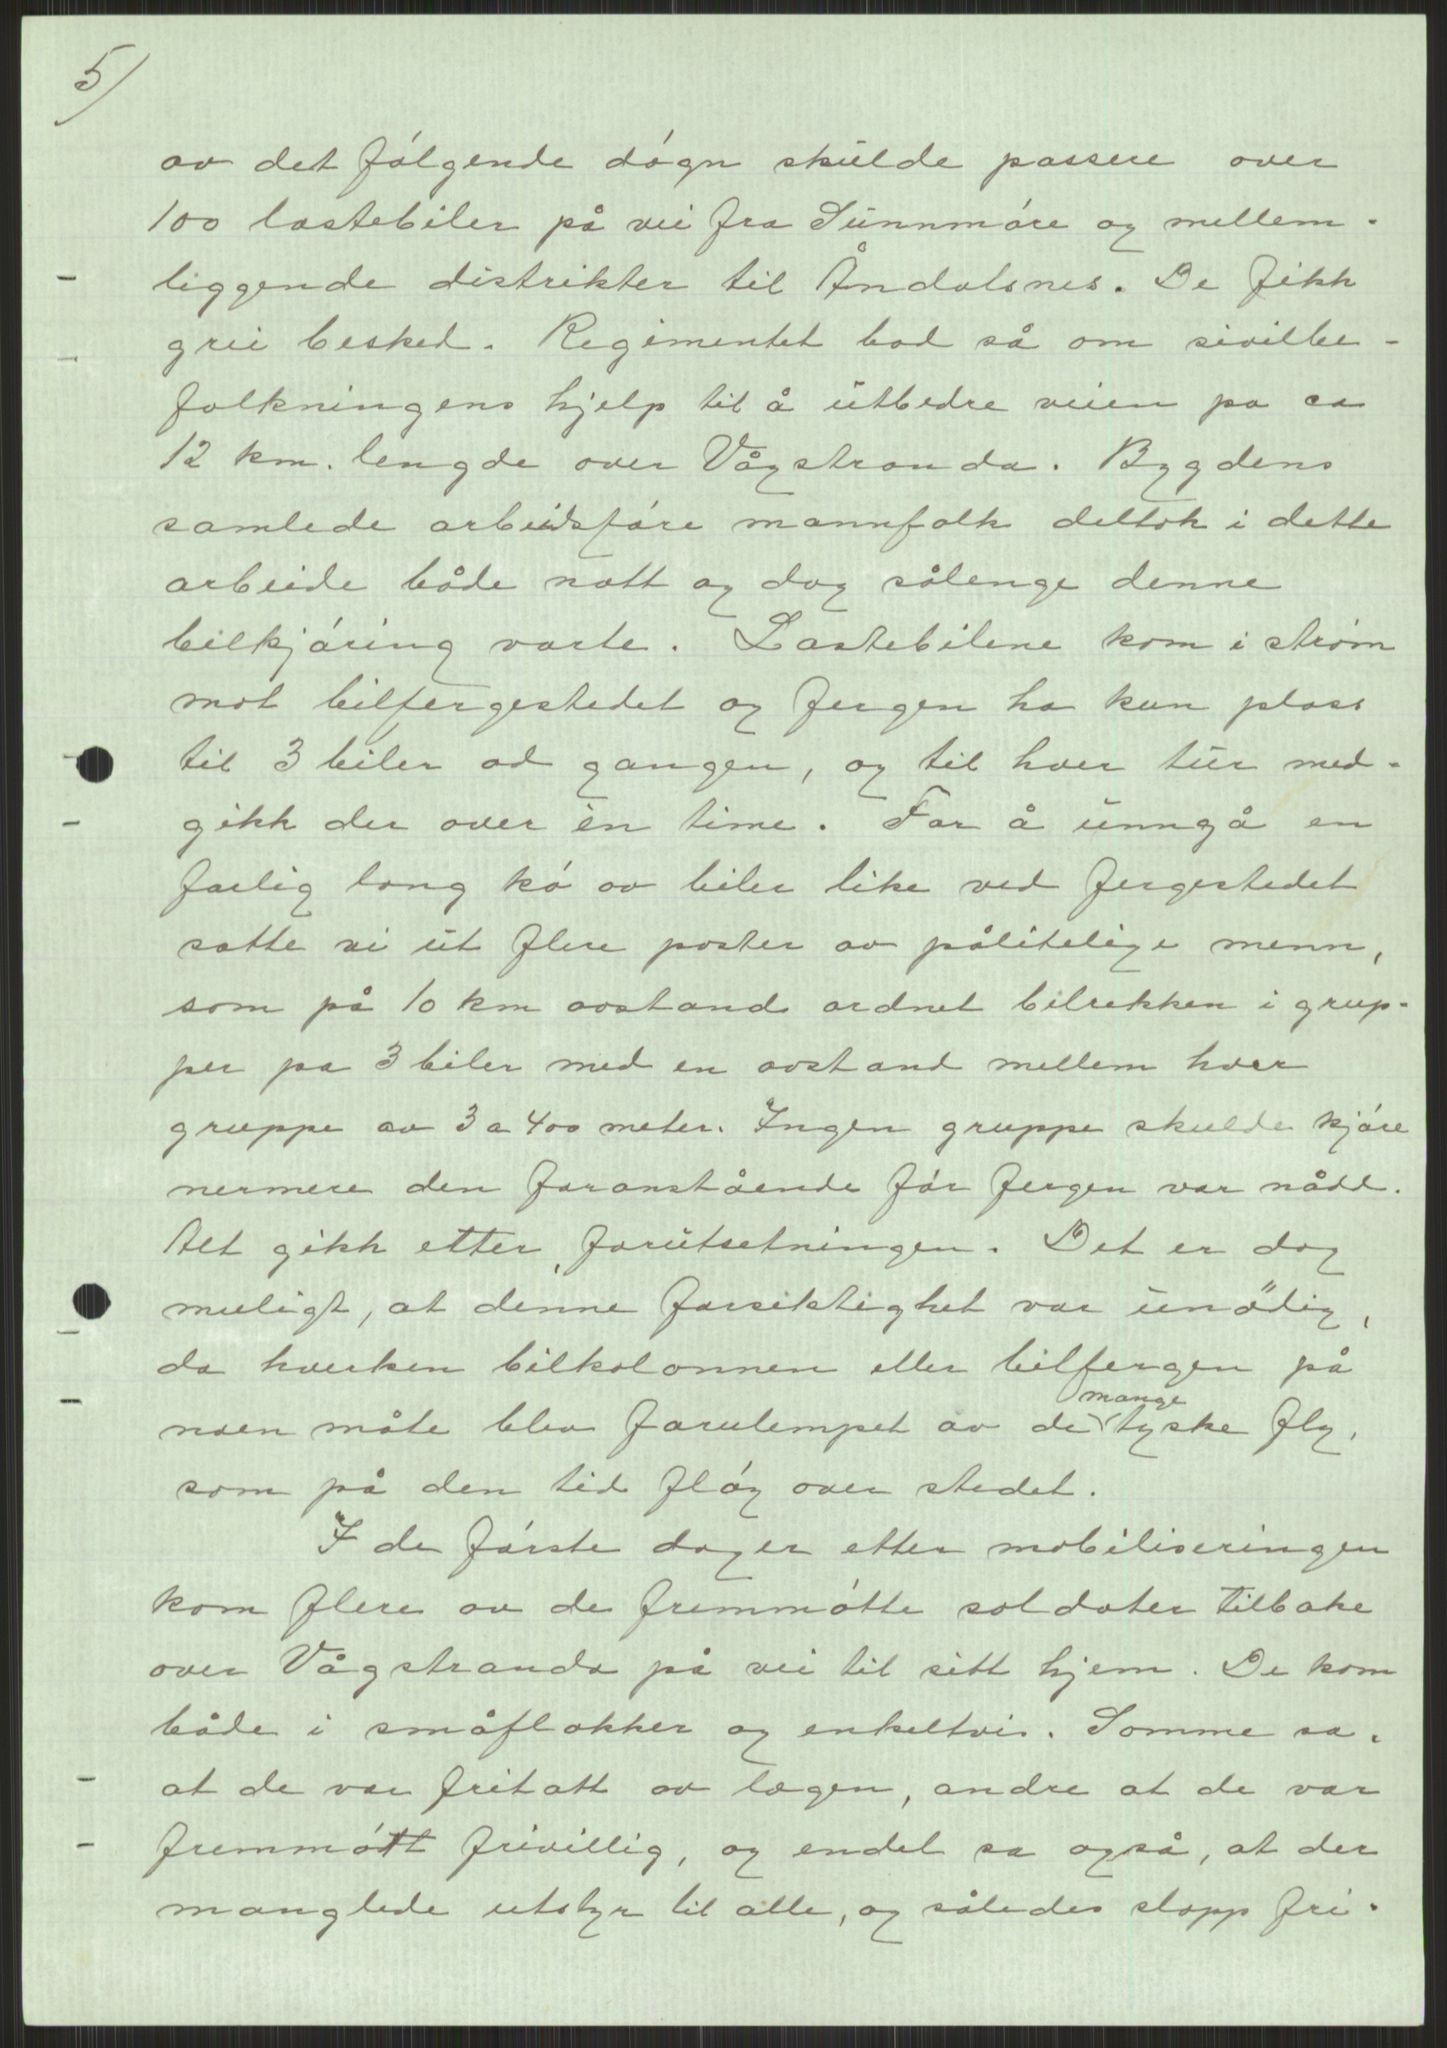 5/
av det følgende døgn skulde passere over
100 lastebiler på vei fra Sunnmøre og mellem-
liggende distrikter til Åndalsnes. De fikk
grei besked. Regimentet bad så om sivilbe-
folkningens hjelp til å utbedre veien pa ca
12 km. lengde over Vågstranda. Bygdens
samlede arbeidsføre mannfolk deltok i dette
arbeide både natt og dag sålenge denne
bilkjøring varte. Lastebilene kom i strøm
mot bilfergestedet og fergen ha kun plass
til 3 biler ad gangen, og til hver tur med-
gikk der over èn time. For å unngå en
farlig lang kø av biler like ved fergestedet
satte vi ut flere poster av pålitelige menn,
som på 10 km avstand ordnet bilrekken i grup-
per pa 3 biler med en avstand mellem hver
gruppe av 3 a 400 meter. Ingen gruppe skulde kjøre
nermere den foranstående før fergen var nådd.
Alt gikk etter forutsetningen. Det er dog
muligt, at denne forsiktighet var unödig,
da hverken bilkolonnen eller bilfergen på
noen måte blev forulempet av de mange tyske fly,
som på den tid fløy over stedet.
I de første dager etter mobiliseringen
kom flere av de fremmøtte soldater tilbake
over Vågstranda på vei til sitt hjem. De kom
både i småflokker og enkeltvis. Somme sa,
at de var fritatt av lægen, andre at de var
fremmøtt frivillig, og endel sa også, at der
manglede utstyr til alle, og således slapp fri-